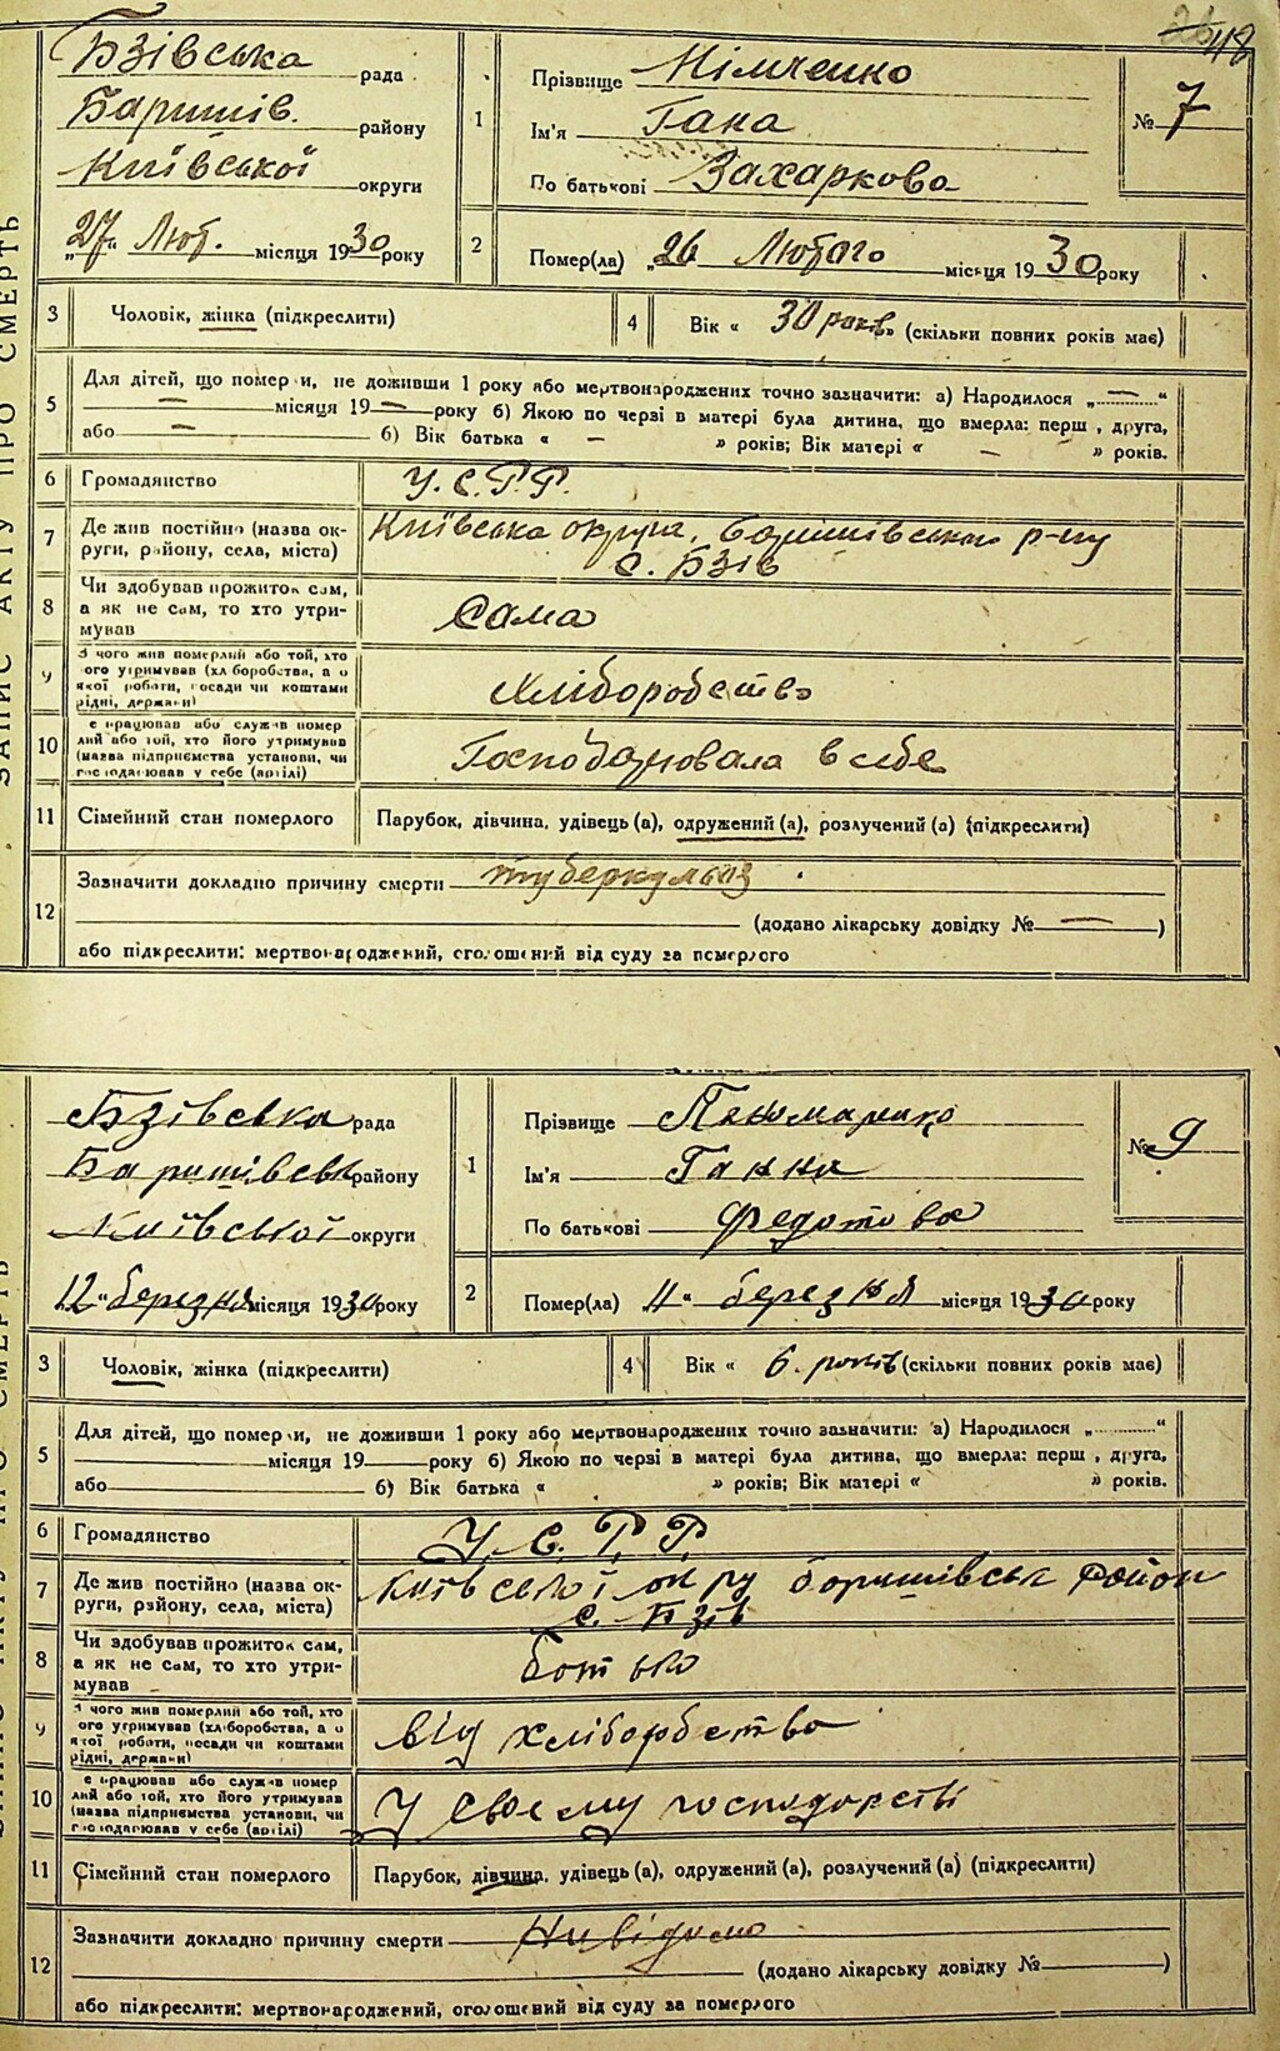 48
Бзівська рада
Баришів. району
Київської округи
„27“ Лют. місяця 1930 року
1
Прізвище Німченко
Ім'я Гана
По батькові Захаркова
№ 7
2
Помер(ла) „26 Лютого місяця 1930 року
ЗАПИС АКТУ ПРО СМЕРТЬ
3 Чоловік, жінка (підкреслити)
4 Вік « 30 років» (скільки повних років має)
5
Для дітей, що помер и, не доживши 1 року або мертвонароджених точно зазначити: а) Народилося „—“
— місяця 19— року б) Якою по черзі в матері була дитина, що вмерла: перш , друга,
або — б) Вік батька « — » років; Вік матері « — » років.
6 Громадянство У.С.Р.Р.
7 Де жив постійно (назва ок-
руги, району, села, міста)
Київська округа, Баришівського р-ну
с. Бзів
8 Чи здобував прожиток сам,
а як не сам, то хто утри-
мував
Сама
9 З чого жив померлий або той, хто
ого утримував (хл боробства, а о
якої роботи, посади чи коштами
рідні, держави)
Хліборобство
10 е працював або служив помер
лий або той, хто його утримував
(назва підприємства установи, чи
господарював у себе (артілі)
Господарювала в себе
11 Сімейний стан померлого Парубок, дівчина, удівець (а), одружений (а), розлучений (а) (підкреслити)
12
Зазначити докладно причину смерти туберкульоз
(додано лікарську довідку № — )
або підкреслити: мертвонароджений, оголошений від суду за померлого
Бзівська рада
Баришівськ району
Київської округи
12“ березня місяця 1930 року
1
Прізвище Понамаренко
Ім'я Ганна
По батькові Федотова
№ 9
2
Помер(ла) 11“ березня місяця 1930 року
3 Чоловік, жінка (підкреслити)
4 Вік « 6. років (скільки повних років має)
5
Для дітей, що помер и, не доживши 1 року або мертвонароджених точно зазначити: а) Народилося „ “
місяця 19 року б) Якою по черзі в матері була дитина, що вмерла: перш , друга,
або б) Вік батька « » років; Вік матері « » років.
6 Громадянство У.С.Р.Р.
7 Де жив постійно (назва ок-
руги, району, села, міста)
Київської окру Боришівськ район
с. Бзів
8 Чи здобував прожиток сам,
а як не сам, то хто утри-
мував
батько
9 З чого жив померлий або той, хто
ого утримував (хл боробства, а о
якої роботи, посади чи коштами
рідні, держави)
від хліборобства
10 е працював або служив помер
лий або той, хто його утримував
(назва підприємства установи, чи
господарював у себе (артілі)
У своєму господарстві
11 Сімейний стан померлого Парубок, дівчина, удівець (а), одружений (а), розлучений (а) (підкреслити)
12
Зазначити докладно причину смерти Нивідомо
(додано лікарську довідку № )
або підкреслити: мертвонароджений, оголошений від суду за померлого